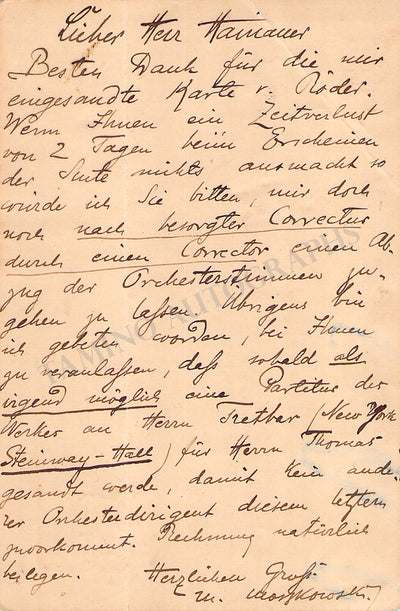 Lieber Herr Hainauer
Besten Dank für die mir
eingesandte Karte v. Röder.
Wenn Ihnen ein Zeitverlust
von 2 Tagen beim Erscheinen
der Suite nichts ausmacht so
würde ich Sie bitten, mir doch
noch nach besorgter Correctur
durch einen Corrector einen Ab-
zug der Orchesterstimmen zu-
gehen zu lassen. Übrigens bin
ich gebeten worden, bei Ihnen
zu veranlassen, daß sobald als
irgend möglich eine Partitur des
Werkes an Herrn Tretbar (New York
Steinway-Hall) für Herrn Thomas
gesandt werde, damit kein ande-
rer Orchesterdirigent diesem letztern
zuvorkommt. Rechnung natürlich
beilegen.
Herzlichen Gruß
M. Moszkowski
TAMINO AUTOGRAPHS